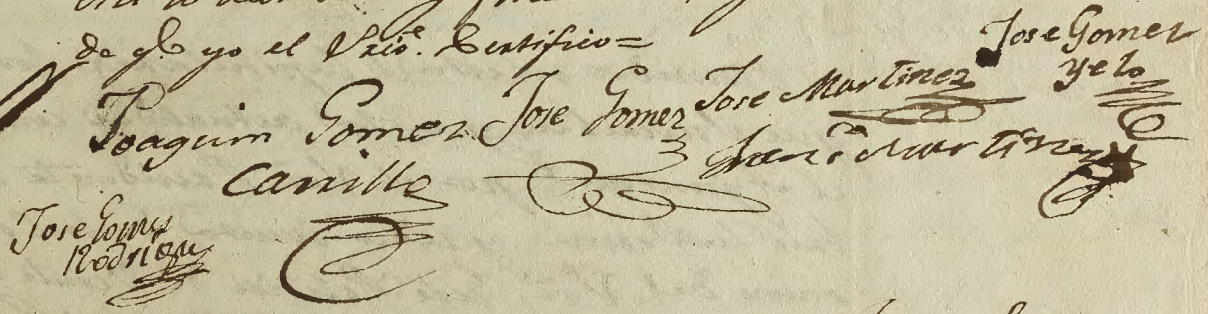 de qe yo el Srio. Certifico=
Jose Gomez
yelo
Joaquin Gomez
Carrillo
Jose Gomez
Jose Martinez
Franco Martinez
Jose Gomez
Rodrigz